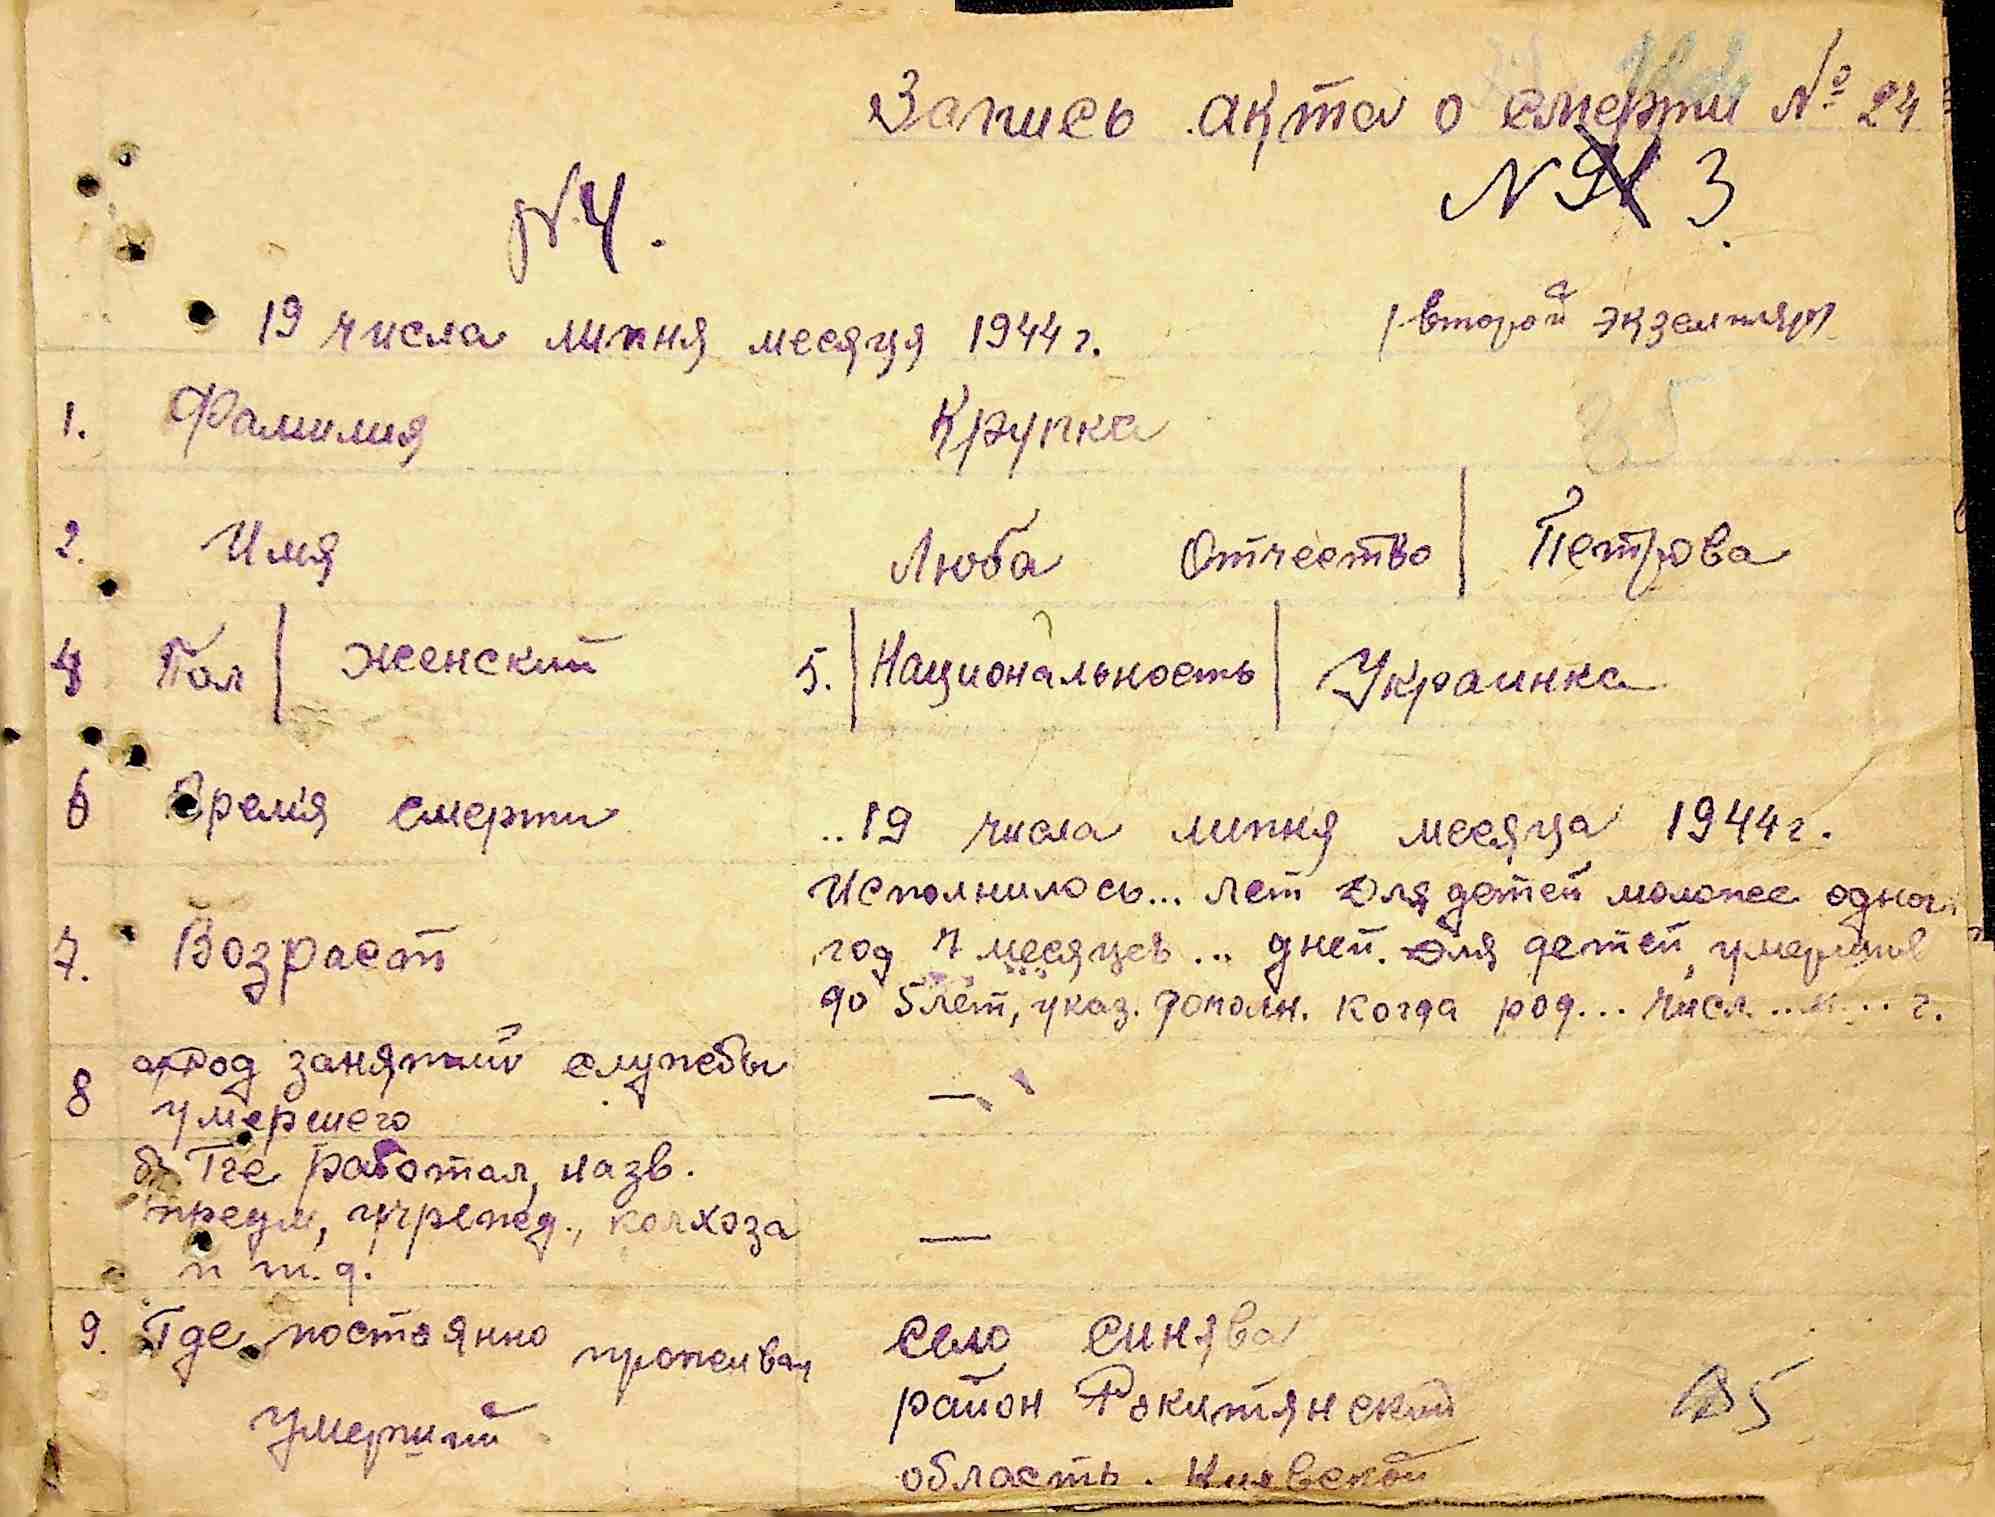 Запись акта о смерти № 24
N 3
N 4.
19 числа липня месяця 1944 г.
/второй экземпляр/
1. Фамилия Крупка
2. Имя Люба Отчество | Петрова
4 Пол | женский 5. | Национальность | Украинка
6 Время смерти .. 19 числа липня месяца 1944 г.
Исполнилось... лет Для детей моложе одног.
7. Возраст год 7 месяцев ... дней. Для детей, умерших
до 5 лет, указ. дополн. когда род... числ... м... г.
8 а) Род занятий службы —
умершего
б) Где работал, назв.
предп, учрежд., колхоза —
и т. д.
9. Где постоянно проживал село синява
район Рокитянский
умерший
область. Киевской